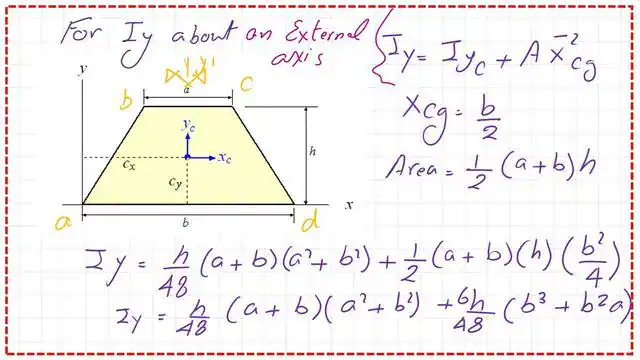 For Iy about an External axis
Iy = Iyc + A x̄²cg
Xcg = b/2
Area = 1/2 (a+b)h
y
a
b
c
yc
xc
cx
cy
h
a
b
d
x
Iy = h/48 (a+b)(a²+b²) + 1/2 (a+b)(h)(b²/4)
Iy = h/48 (a+b)(a²+b²) + 6h/48 (b³+b²a)